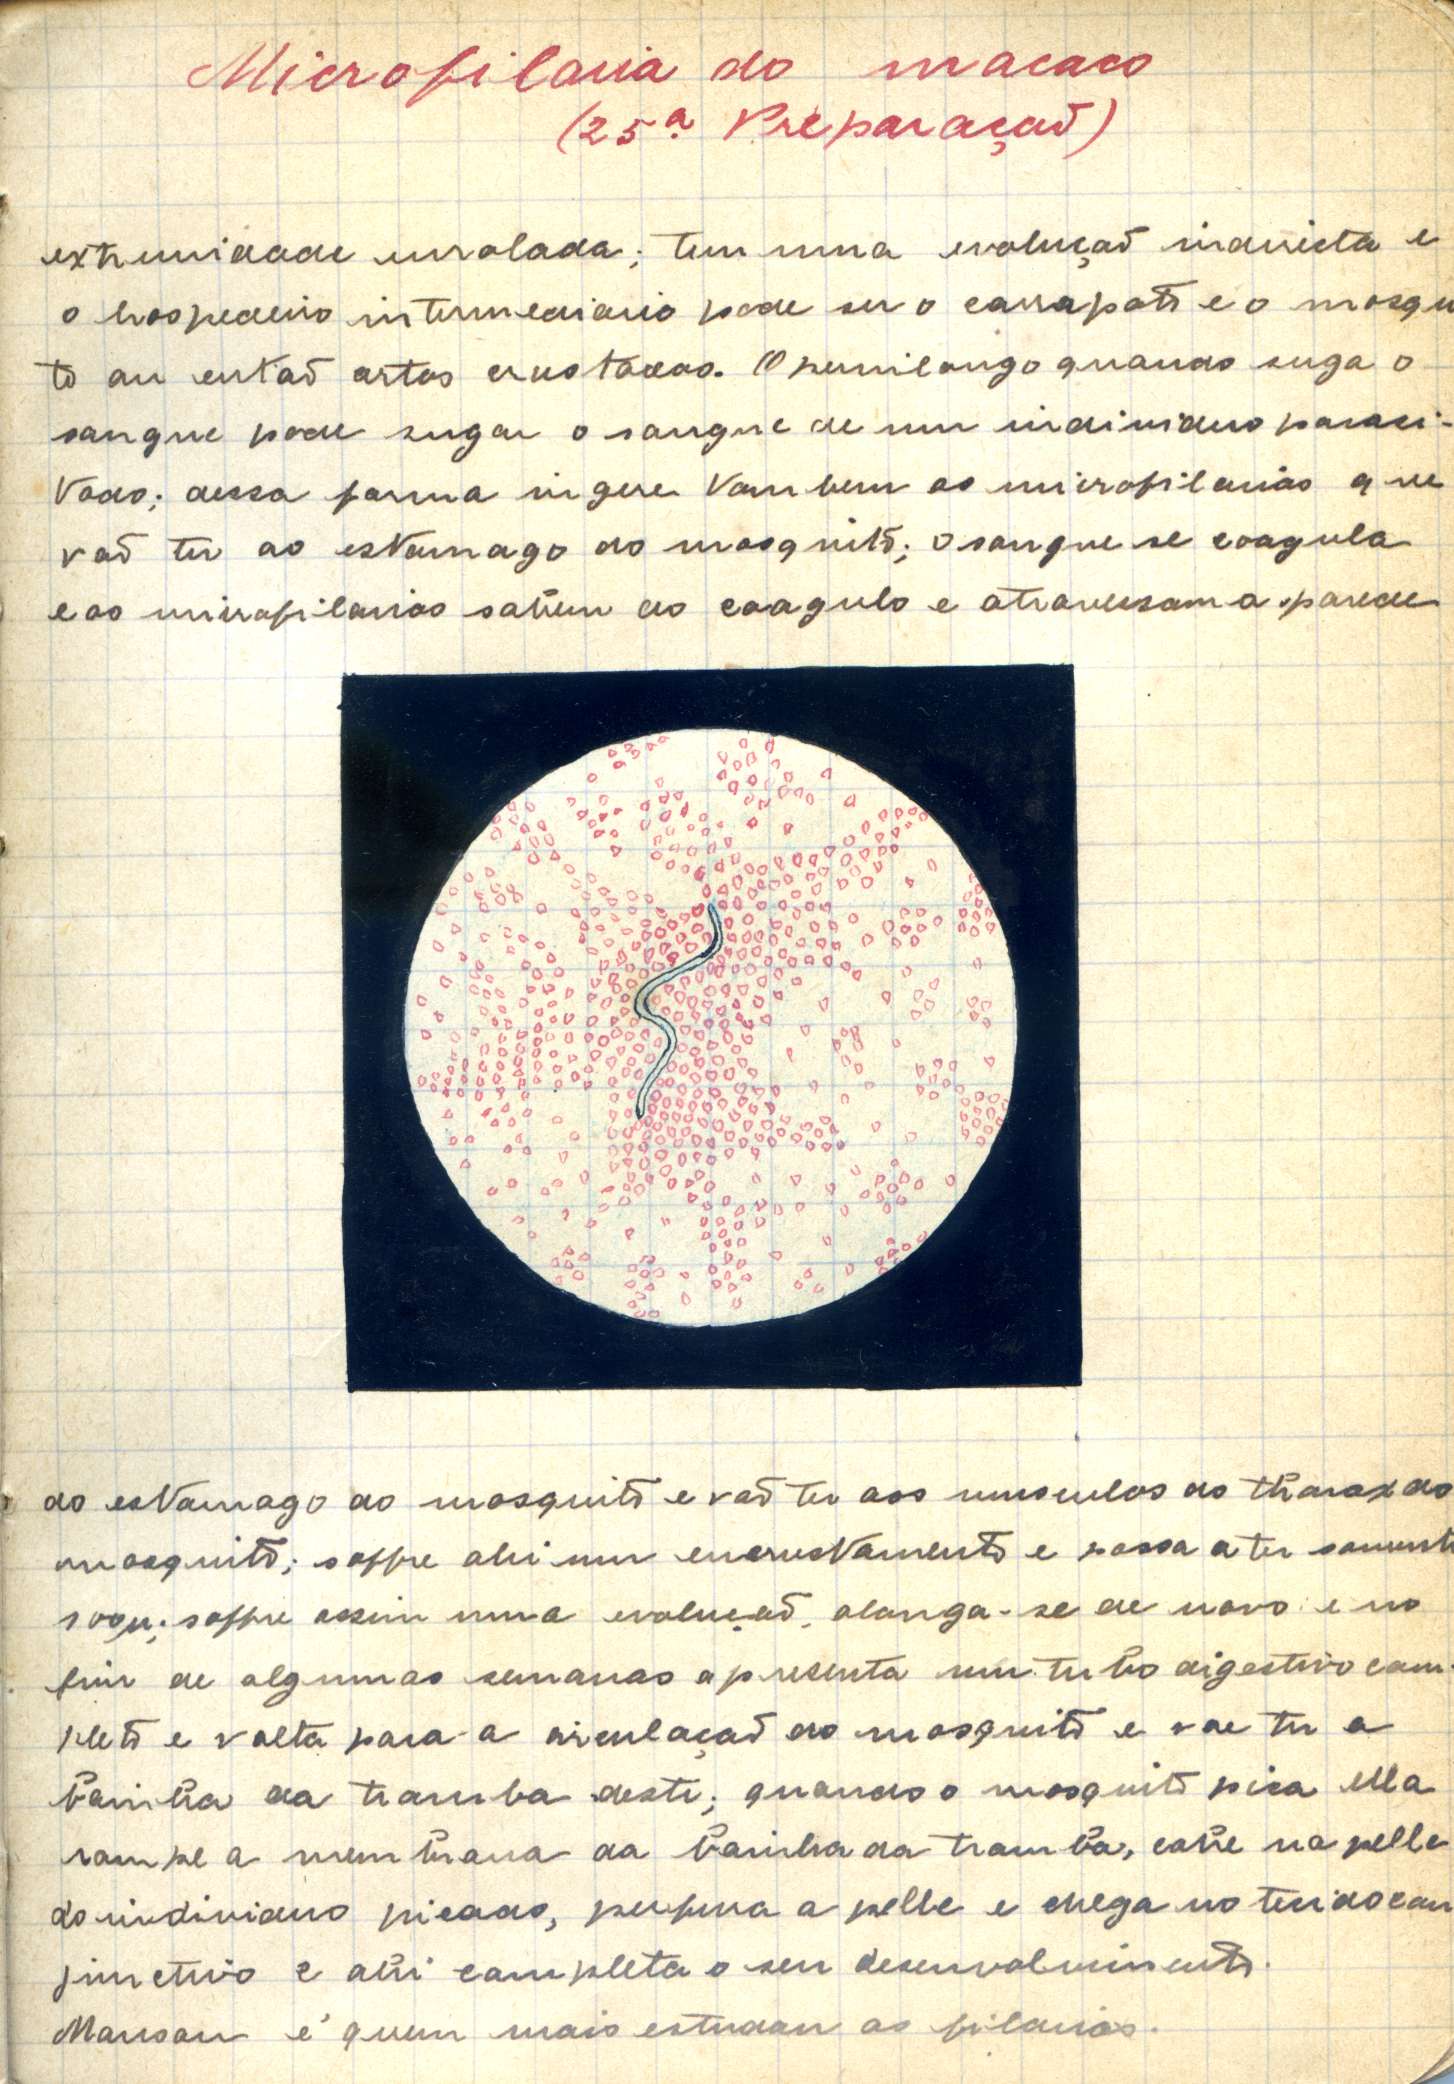 Microfilaria do macaco
(25ª Preparação)
extremidade enrolada; tem uma evolução indirecta e
o hospedeiro intermediario pode ser o carrapato e o mosqui
to ou então certos crustaceos. O pernilongo quando suga o
sangue pode sugar o sangue de um individuo parasi-
tado; dessa forma ingere tambem as microfilarias que
vão ter ao estomago do mosquito; o sangue se coagula
e as microfilarias sahem do coagulo e atravessam a parede
do estomago do mosquito e vão ter aos musculos do thorax do
mosquito; soffre ahi um encrustamento e passa a ter somente
soffre assim uma evolução, alonga-se de novo e no
fim de algumas semanas apresenta um tubo digestivo com-
pleto e volta para a circulação do mosquito e vae ter a
bainha da tromba deste; quando o mosquito pica ella
rompe a membrana da bainha da tromba, cahe na pelle
do individuo picado, perfura a pelle e chega no tecido con
junctivo e ahi completa o seu desenvolvimento.
Manson é quem mais estudou as filarias.